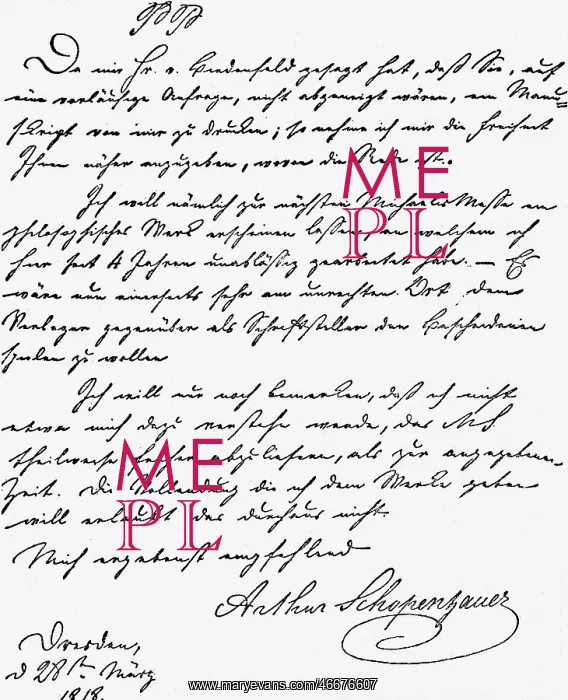 PP
Da mir Hr. v. Biedenfeld gesagt hat, daß Sie, auf
eine vorläufige Anfrage, nicht abgeneigt wären, ein Manu-
skript von mir zu drucken; so nehme ich mir die Freiheit
Ihnen näher anzugeben, wovon die Rede ist.
Ich will nämlich zur nächsten Michaelis Messe ein
philosophisches Werk erscheinen lassen, an welchem ich
hier seit 4 Jahren unablässig gearbeitet habe. — Es
wäre nun einerseits sehr am unrechten Ort dem
Verleger gegenüber als Schriftsteller den Bescheidenen
spielen zu wollen
Ich will nur noch bemerken, daß ich nicht
etwa mich dazu verstehn werde, das MS
theilweise früher abzuliefern, als zur angegebenen
Zeit. Die Vollendung die ich dem Werke geben
will erlaubt das durchaus nicht.
Mich ergebenst empfehlend
Arthur Schopenhauer
Dresden,
d 28sten März
1818.
ME
PL
ME
PL
www.maryevans.com/46676607